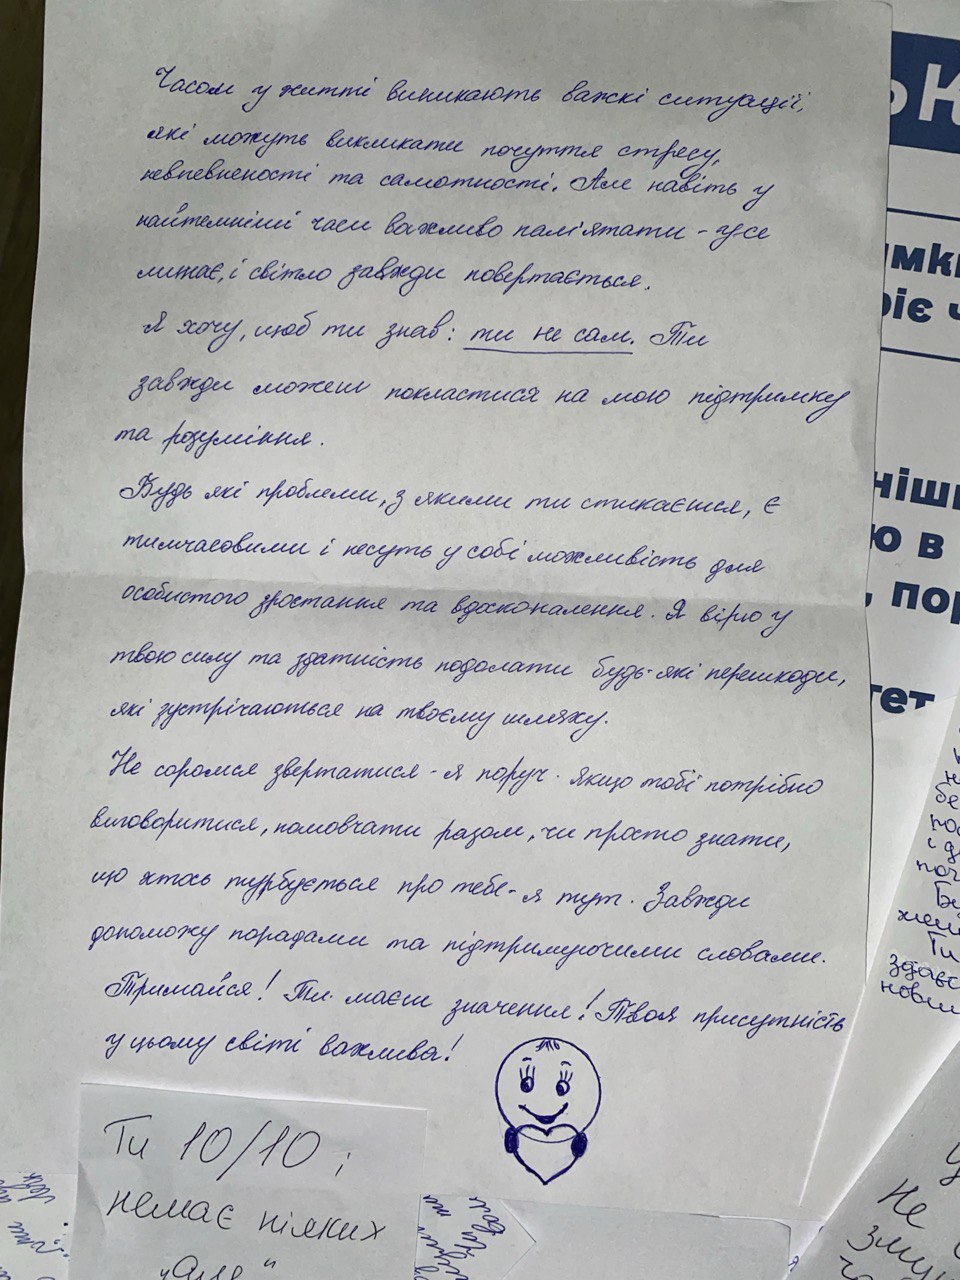 Часом у житті виникають важкі ситуації,
які можуть викликати почуття стресу,
невпевненості та самотності. Але навіть у
найтемніші часи важливо пам'ятати - усе
минає, і світло завжди повертається.
Я хочу, щоб ти знав: ти не сам. Ти
завжди можеш покластися на мою підтримку
та розуміння.
Будь які проблеми, з якими ти стикаєшся, є
тимчасовими і несуть у собі можливість для
особистого зростання та вдосконалення. Я вірю у
твою силу та здатність подолати будь-які перешкоди,
які зустрічаються на твоєму шляху.
Не соромся звертатися - я поруч. Якщо тобі потрібно
виговоритися, помовчати разом, чи просто знати,
що хтось турбується про тебе - я тут. Завжди
допоможу порадами та підтримуючими словами.
Тримайся! Ти маєш значення! Твоя присутність
у цьому світі важлива!
Ти 10/10 ;
немає ніяких
„але"
ьк
імкі
ріє ч
ніш
ю в
, пор
тет
Ти
Не